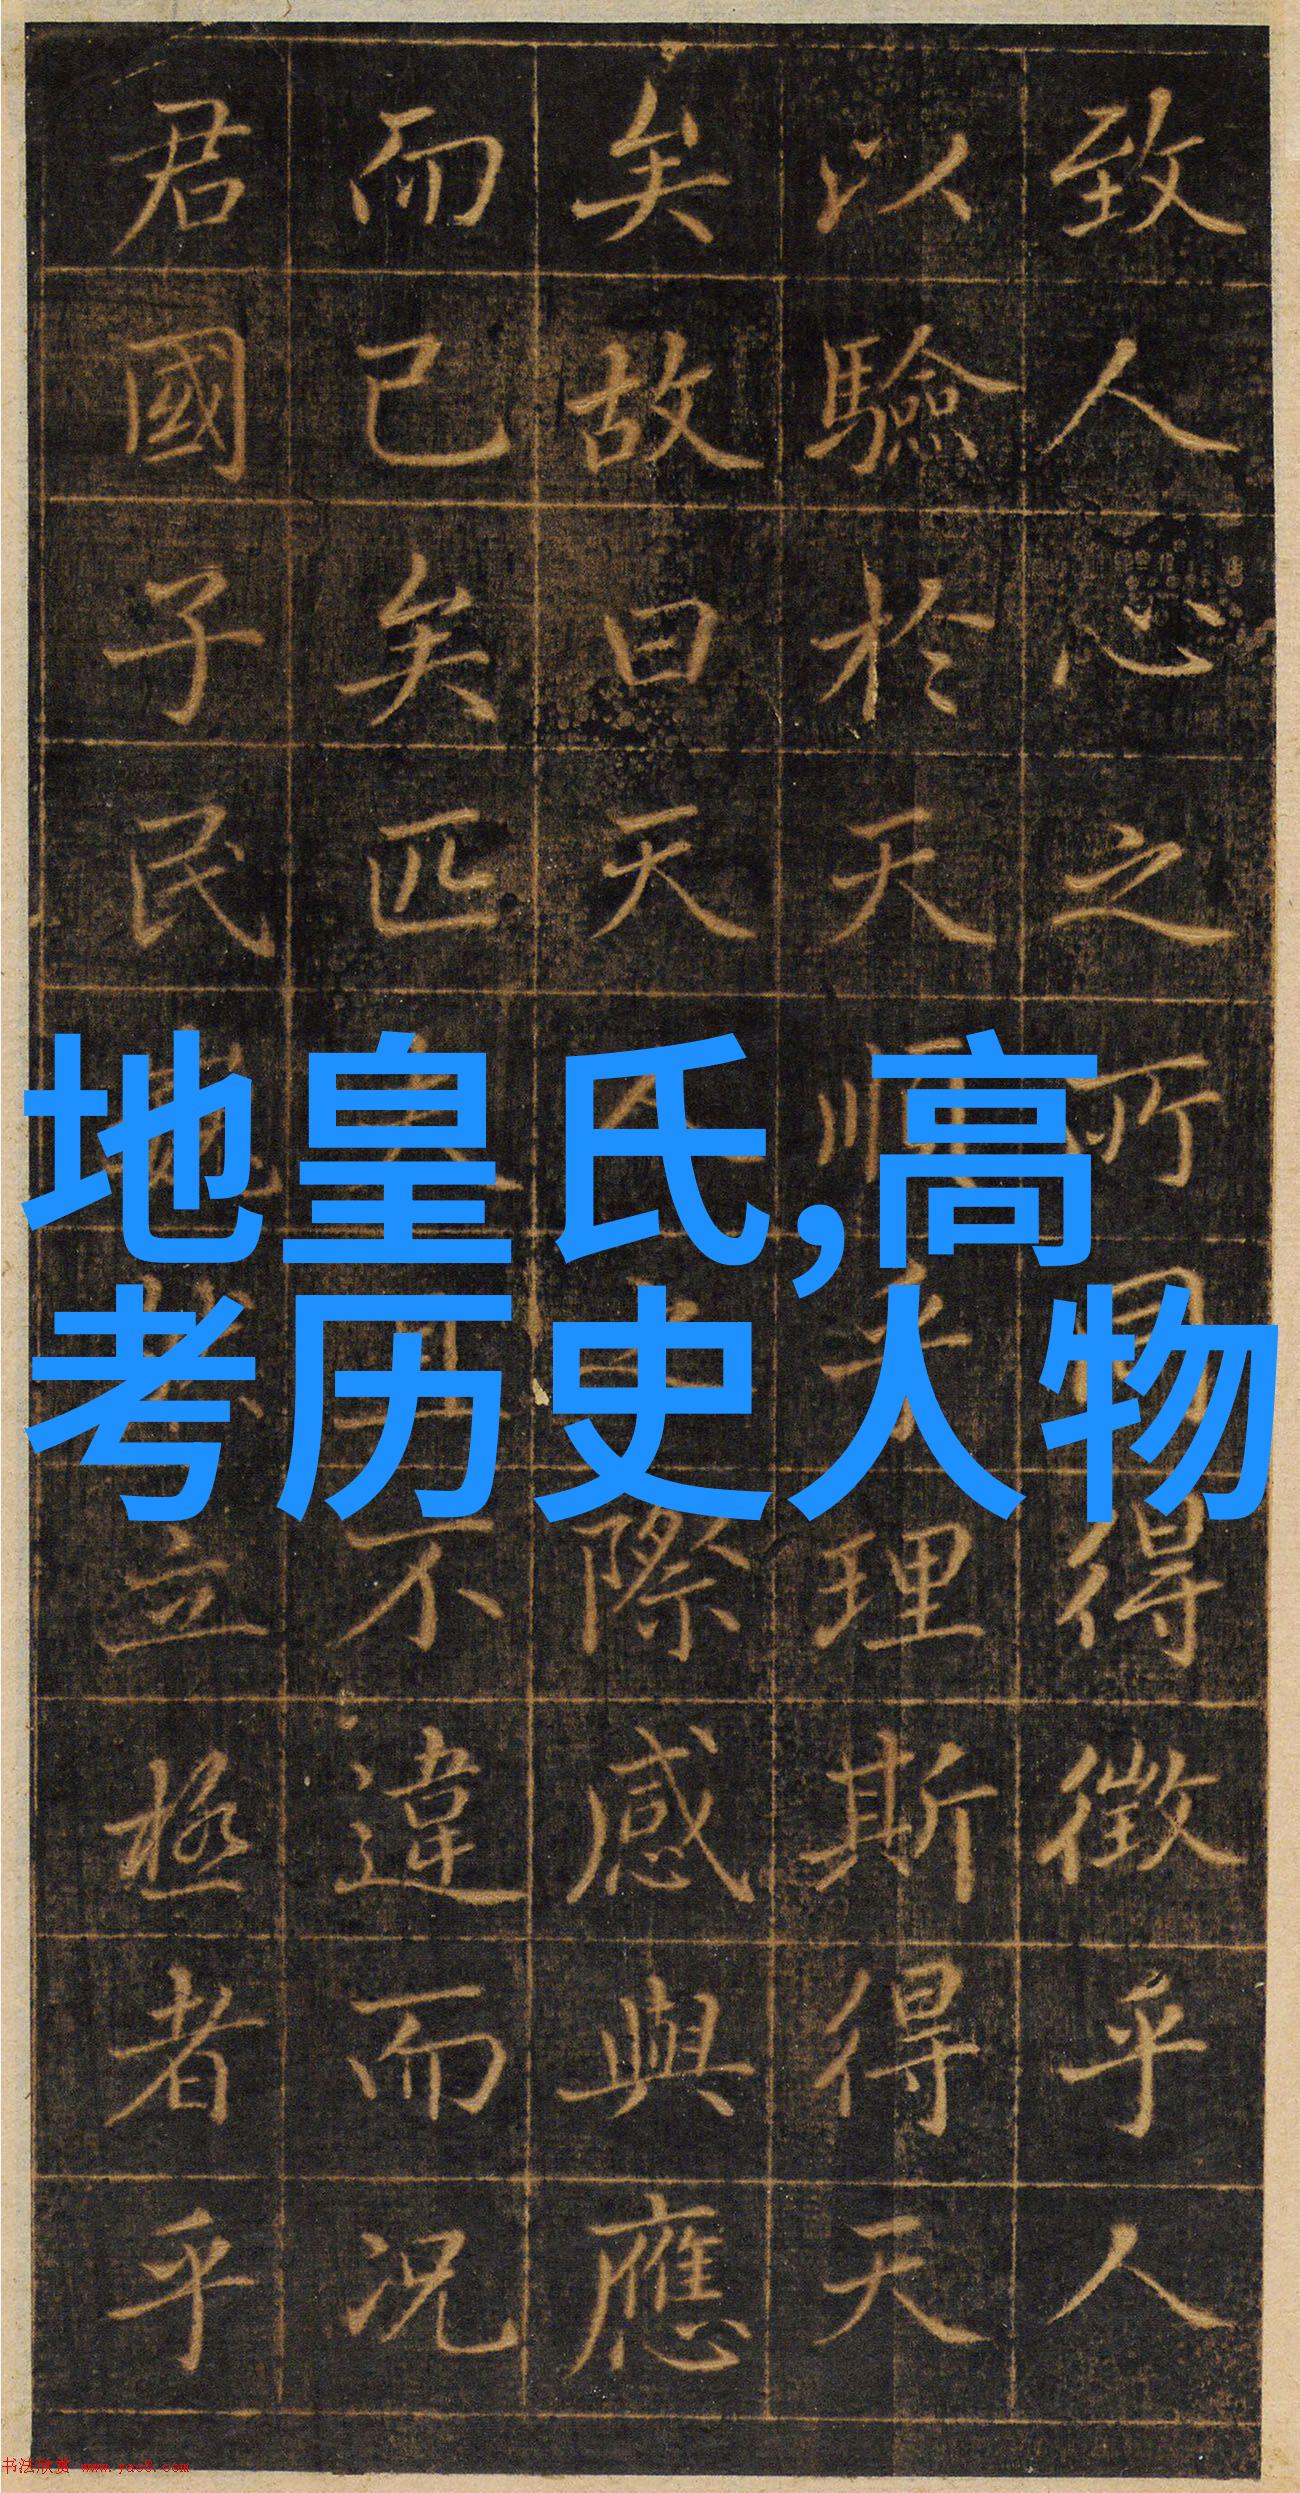 致人心之所同得徵乎人
以驗於天順乎理斯得天
矣故曰天人之際感與應
而已矣匹夫且不違而况
君國子民巍然立極者乎
地皇氏,高
考历史人物
书法欣赏 www.yac8.com